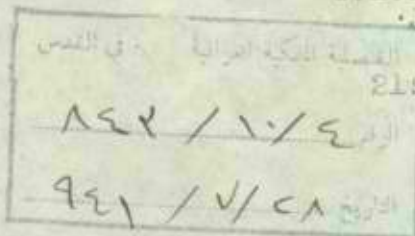 القنصلية الملكية العراقية في القدس
الرقم ٤ /١٠ / ٨٤٣
التاريخ ٢٨ /٧ / ٩٤١